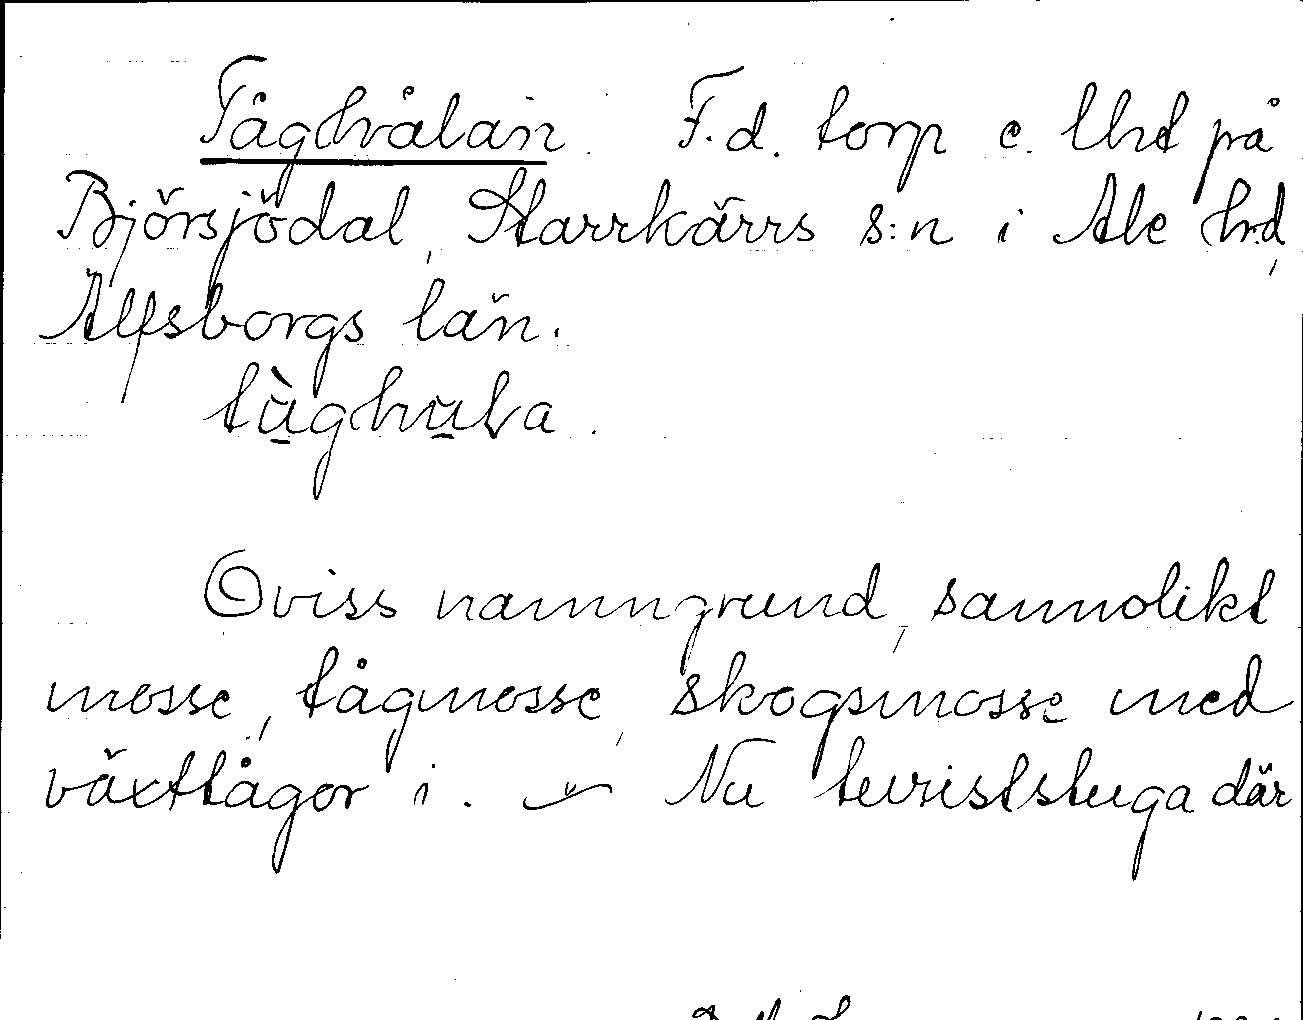 Tåghvålan. F.d. torp e. lht på
Björsjödal, Starrkärrs s:n i Ale hrd,
Älfsborgs län.
tùghula.
Oviss namngrund, sannolikt
mosse, tågmosse, skogsmosse med
växttågor i. — Nu turiststuga där